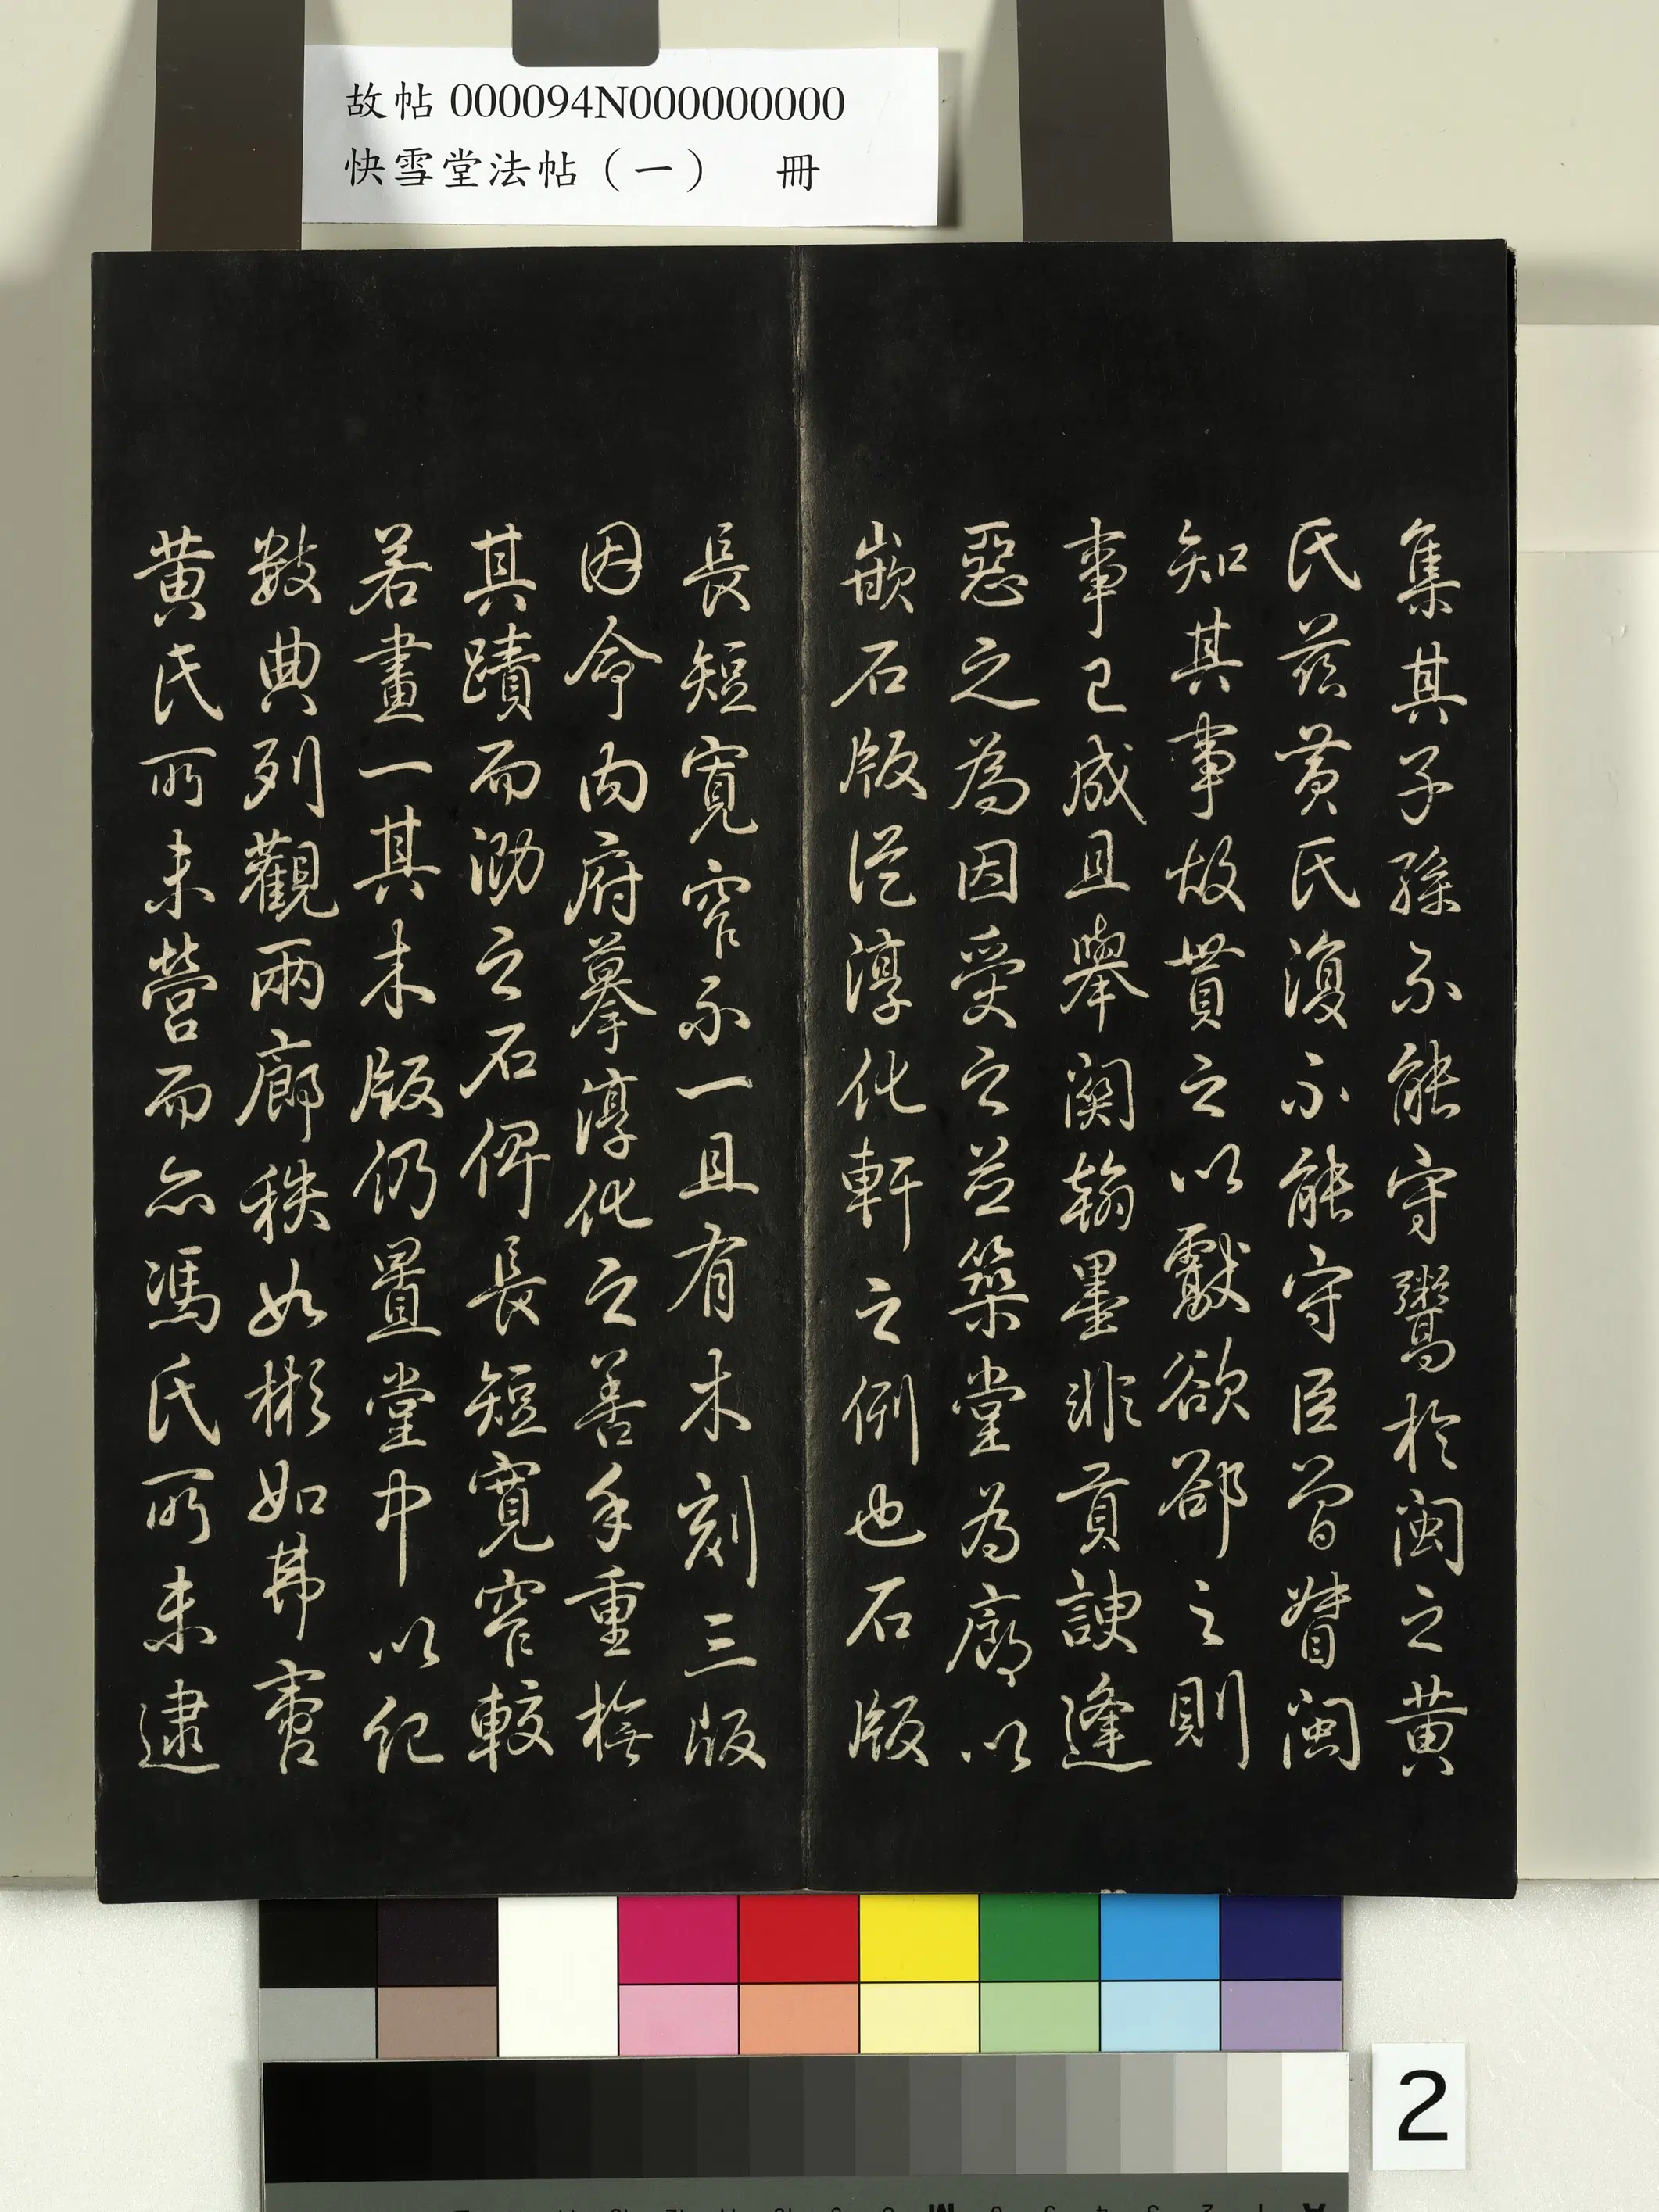 故帖000094N000000000
快雪堂法帖（一） 冊
集其子孫不能守鬻於閩之黃
氏茲黃氏復不能守臣曾督閩
知其事故貰之以獻欲郤之則
事已成且舉關翰墨非貢諛逢
惡之為因受之並築堂為廊以
嵌石版從淳化軒之例也石版
長短寬窄不一且有木刻三版
因命內府摹淳化之善手重橅
其蹟而泐之石俾長短寬窄較
若畫一其木版仍置堂中以紀
數典列觀兩廊秩如彬如弗啻
黃氏所未營而亦馮氏所未逮
2